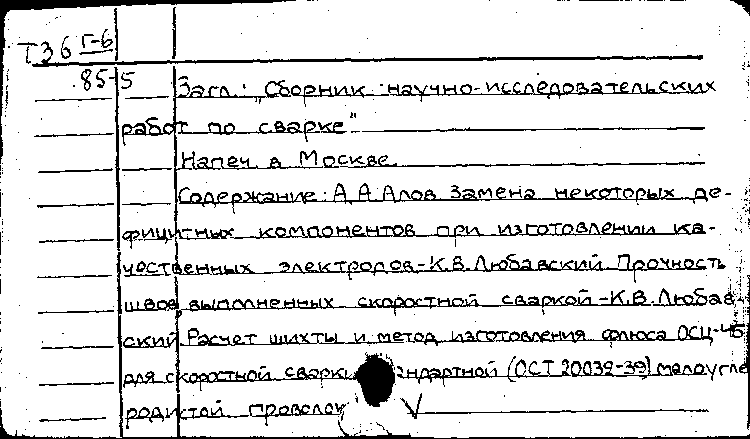 Т36 Г-6
85-5 Загл.: „Сборник научно-исследовательских
работ по сварке"
Напеч. в Москве.
Содержание: А.А.Алов Замена некоторых де-
фицитных компонентов при изготовлении ка-
чественных электродов-К.В.Любавский Прочность
швов, выполненных скоростной сваркой-К.В.Любав-
ский Расчет шихты и метод изготовления флюса ОСЦ-45
для скоростной сварки ндартной (ОСТ 20032-39) малоугле
родистой проволок